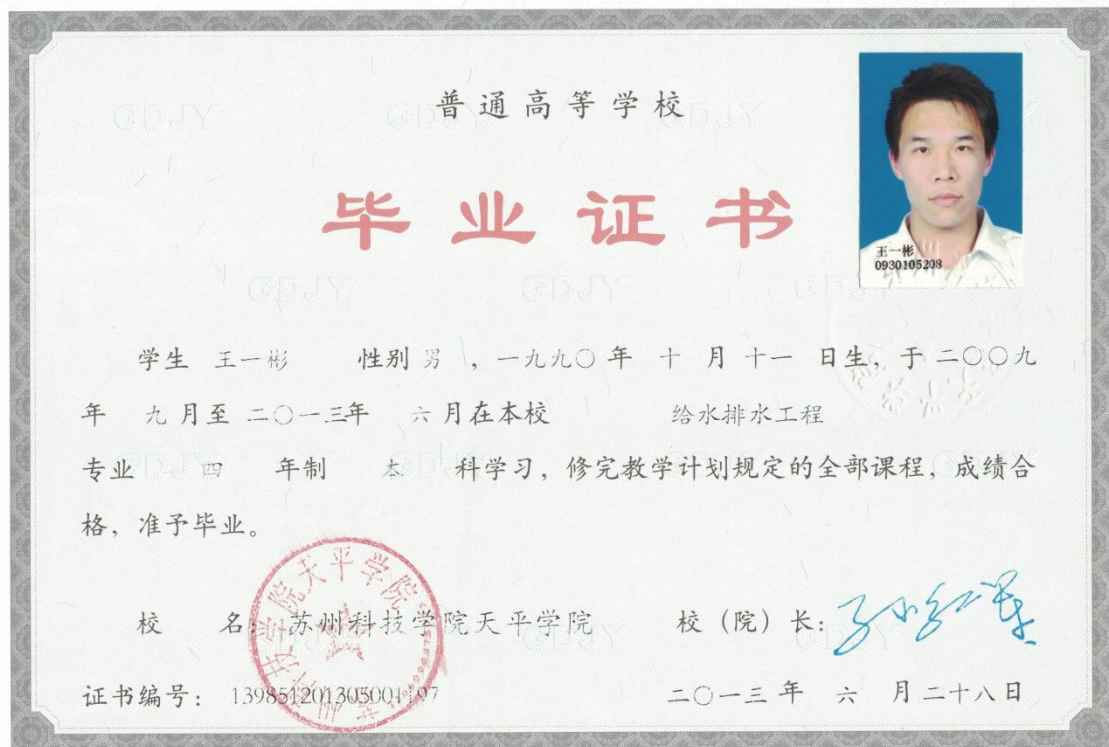 普通高等学校
毕业证书
王一彬
0930105208
学生 王一彬 性别 男 ，一九九〇年 十 月 十一 日生，于 二〇〇九
年 九 月至 二〇一三年 六 月在本校 给水排水工程
专业 四 年制 本 科学习，修完教学计划规定的全部课程，成绩合
格，准予毕业。
校 名： 苏州科技学院天平学院 校（院）长：
苏州科技学院天平学院
证书编号： 139851201305001197 二〇一三 年 六 月 二十八日